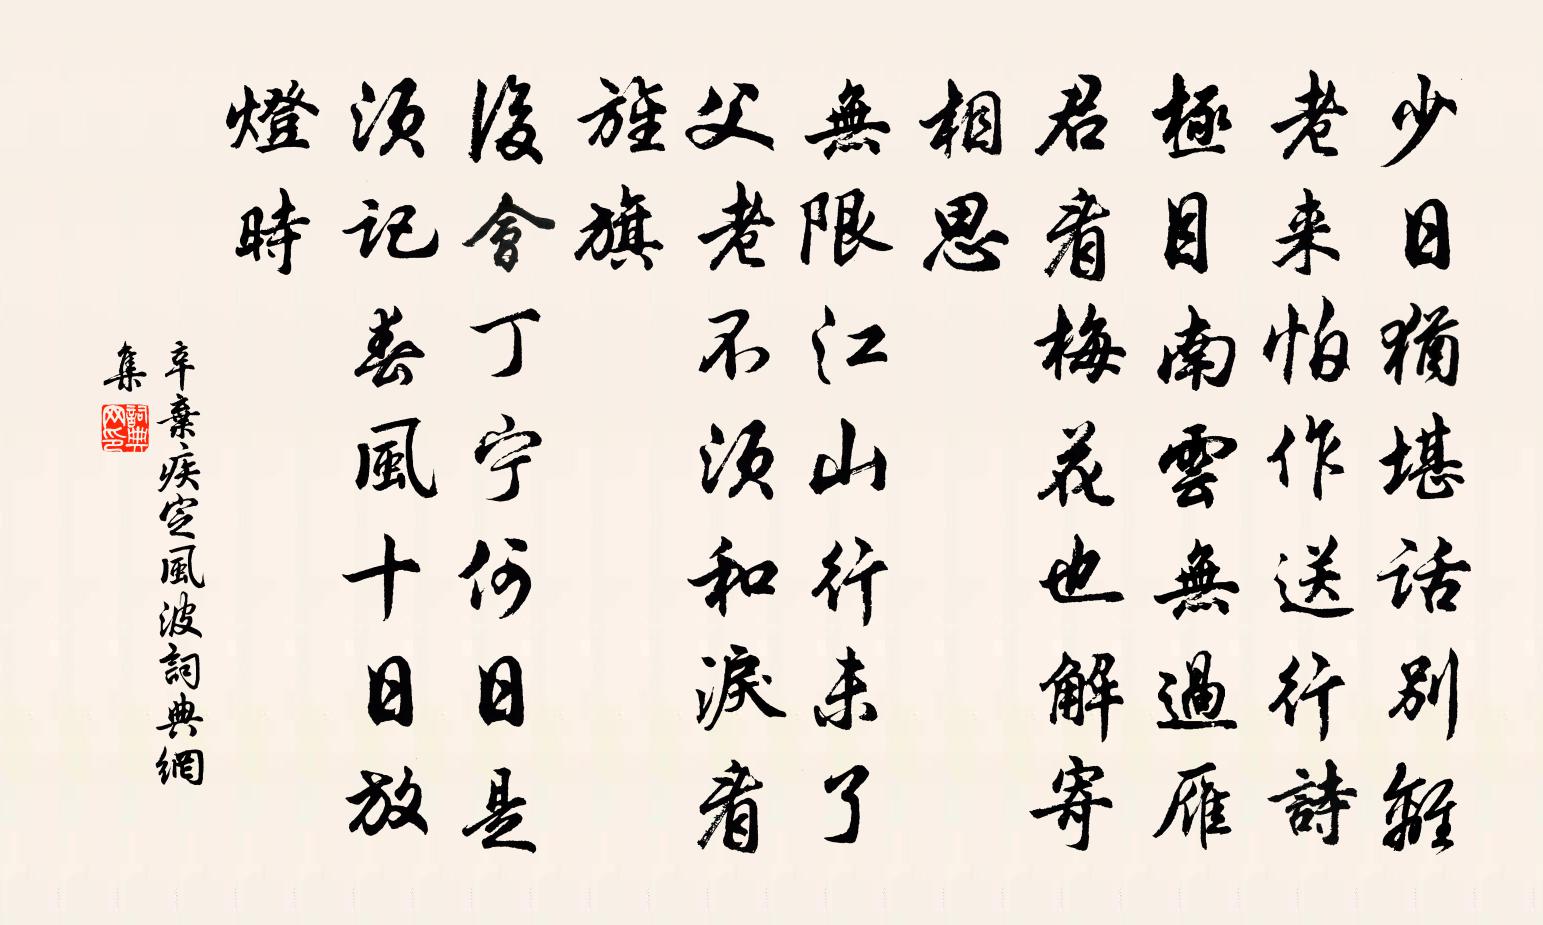 少日猶堪話別離
老来怕作送行詩
極目南雲無過雁
君看梅花也解寄
相思
無限江山行未了
父老不須和淚看
旌旗
後會丁宁何日是
須記春風十日放
燈時
辛棄疾定風波詞典網
集
詞典网印